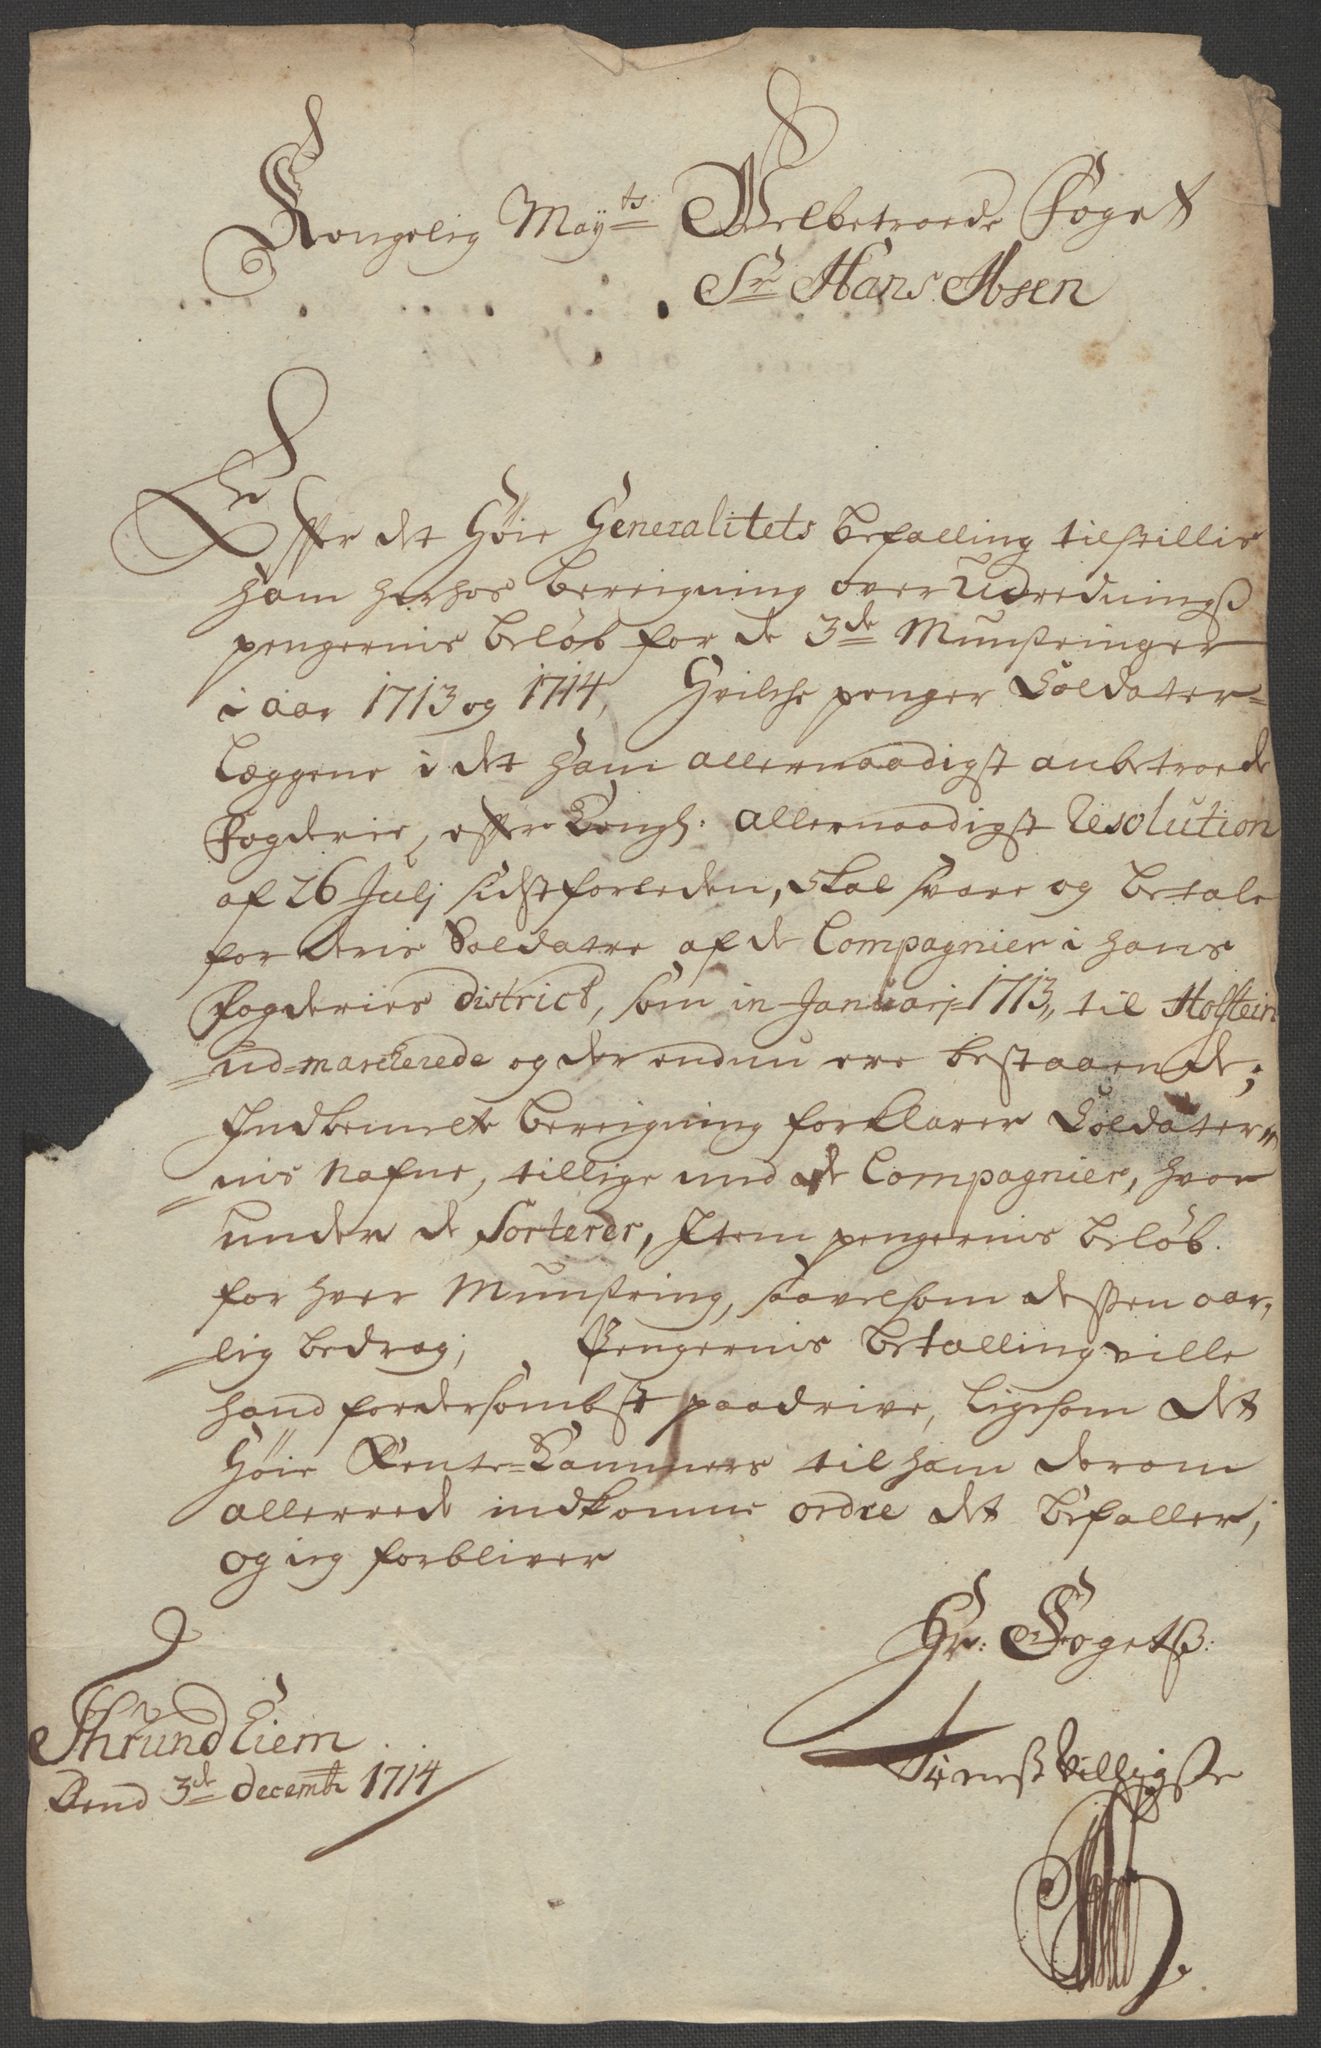 Kongelig May^ts Velbetroede Foget
Sr Hans Ibsen
Effter det Høie Generalitets befalling tilstillis
ham herhos bereigning over Udrednings
pengernis beløb for de 3de Munstringer
i aar 1713 og 1714, Hvilche penger Soldater-
Læggene i det ham allernaadigst anbetroede
Fogderie, efter Kongl: allernaadigst Resolution
af 26 Julj sidstforleden, skal svare og betale
for deris Soldater af de Compagnier i hans
Fogderies district, som in Januarj 1713, til Holstein
ud-marcherede og der endnu ere bestaaende;
Indbemelte bereigning forklarer Soldater-
nis Nafne, tillige med de Compagnier, hvor
under de Sorterer, Item pengernis beløb
for hver Munstring, saavelsom dessen aar-
lig bedrag; Pengernis betalling ville
hand fordersombst paadrive, ligesom det
Høie Rente-Cammers til ham derom
allerrede indkomne ordre det befaller,
og ieg forbliver
Hr: Fogetß:
Thrundhiem
Dend 3de decembr 1714
Tienstvilligste